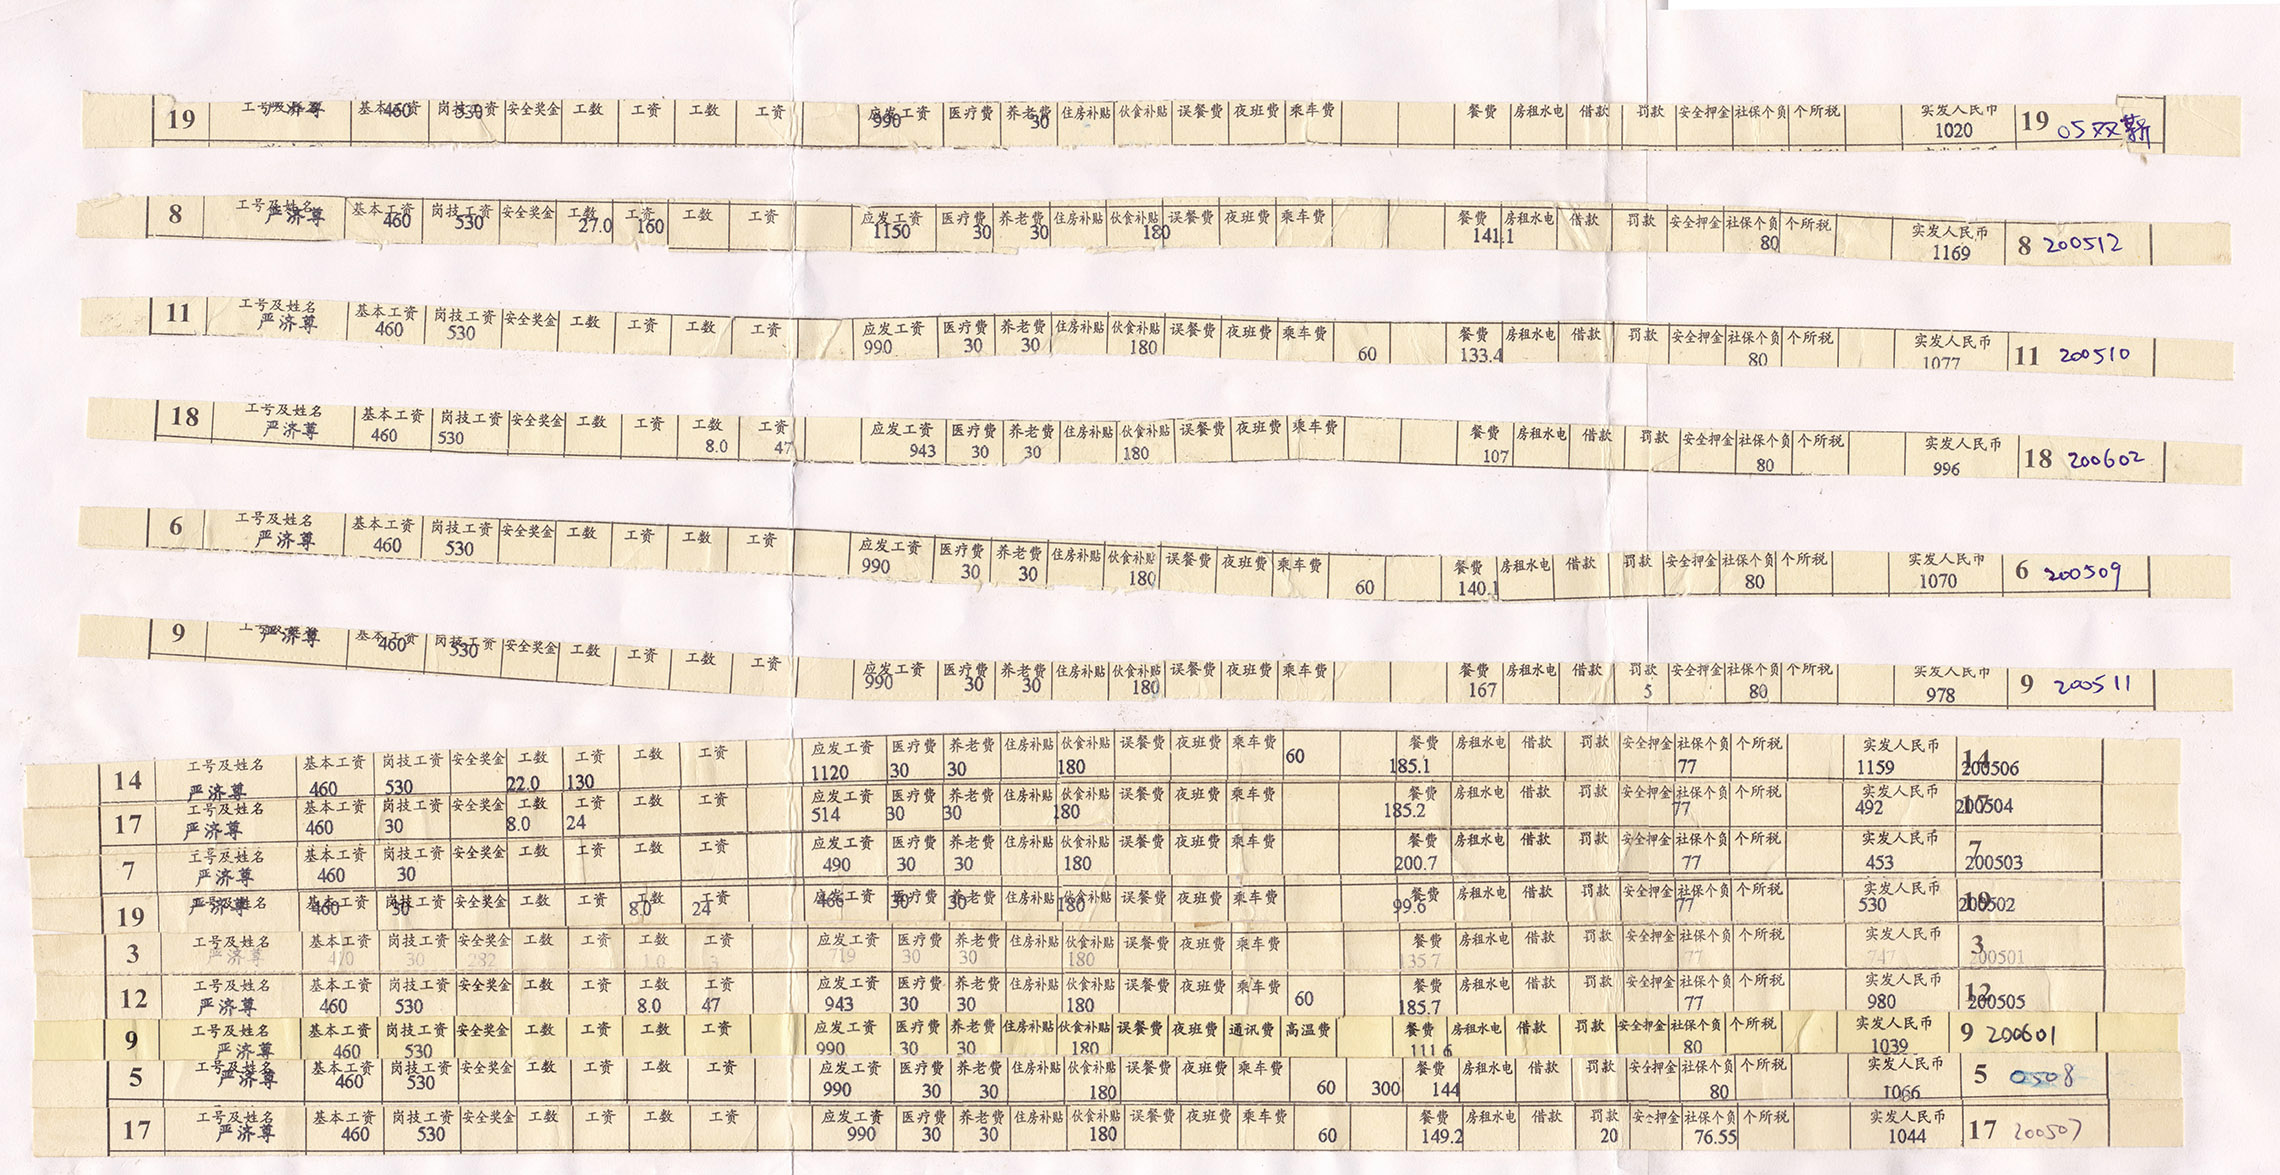 19 工号及姓名 基本工资 岗技工资 安全奖金 工数 工资 工数 工资 应发工资 医疗费 养老费 住房补贴 伙食补贴 误餐费 夜班费 乘车费 餐费 房租水电 借款 罚款 安全押金 社保个负 个所税 实发人民币 19 05双薪
严济尊 460 530 990 30 1020
8 工号及姓名 基本工资 岗技工资 安全奖金 工数 工资 工数 工资 应发工资 医疗费 养老费 住房补贴 伙食补贴 误餐费 夜班费 乘车费 餐费 房租水电 借款 罚款 安全押金 社保个负 个所税 实发人民币 8 200512
严济尊 460 530 27.0 160 1150 30 30 180 141.1 80 1169
11 工号及姓名 基本工资 岗技工资 安全奖金 工数 工资 工数 工资 应发工资 医疗费 养老费 住房补贴 伙食补贴 误餐费 夜班费 乘车费 餐费 房租水电 借款 罚款 安全押金 社保个负 个所税 实发人民币 11 200510
严济尊 460 530 990 30 30 180 60 133.4 80 1077
18 工号及姓名 基本工资 岗技工资 安全奖金 工数 工资 工数 工资 应发工资 医疗费 养老费 住房补贴 伙食补贴 误餐费 夜班费 乘车费 餐费 房租水电 借款 罚款 安全押金 社保个负 个所税 实发人民币 18 200602
严济尊 460 530 8.0 47 943 30 30 180 107 80 996
6 工号及姓名 基本工资 岗技工资 安全奖金 工数 工资 工数 工资 应发工资 医疗费 养老费 住房补贴 伙食补贴 误餐费 夜班费 乘车费 餐费 房租水电 借款 罚款 安全押金 社保个负 个所税 实发人民币 6 200509
严济尊 460 530 990 30 30 180 60 140.1 80 1070
9 基本工资 岗技工资 安全奖金 工数 工资 工数 工资 应发工资 医疗费 养老费 住房补贴 伙食补贴 误餐费 夜班费 乘车费 餐费 房租水电 借款 罚款 安全押金 社保个负 个所税 实发人民币 9 200511
严济尊 460 530 990 30 30 180 167 5 80 978
14 工号及姓名 基本工资 岗技工资 安全奖金 工数 工资 工数 工资 应发工资 医疗费 养老费 住房补贴 伙食补贴 误餐费 夜班费 乘车费 餐费 房租水电 借款 罚款 安全押金 社保个负 个所税 实发人民币 14
严济尊 460 530 22.0 130 1120 30 30 180 60 185.1 77 1159 200506
17 工号及姓名 基本工资 岗技工资 安全奖金 工数 工资 工数 工资 应发工资 医疗费 养老费 住房补贴 伙食补贴 误餐费 夜班费 乘车费 餐费 房租水电 借款 罚款 安全押金 社保个负 个所税 实发人民币 17
严济尊 460 30 8.0 24 514 30 30 180 185.2 77 492 200504
7 工号及姓名 基本工资 岗技工资 安全奖金 工数 工资 工数 工资 应发工资 医疗费 养老费 住房补贴 伙食补贴 误餐费 夜班费 乘车费 餐费 房租水电 借款 罚款 安全押金 社保个负 个所税 实发人民币 7
严济尊 460 30 490 30 30 180 200.7 77 453 200503
19 工号及姓名 基本工资 岗技工资 安全奖金 工数 工资 工数 工资 应发工资 医疗费 养老费 住房补贴 伙食补贴 误餐费 夜班费 乘车费 餐费 房租水电 借款 罚款 安全押金 社保个负 个所税 实发人民币 19
严济尊 460 30 8.0 24 466 30 30 180 99.6 77 530 200502
3 工号及姓名 基本工资 岗技工资 安全奖金 工数 工资 工数 工资 应发工资 医疗费 养老费 住房补贴 伙食补贴 误餐费 夜班费 乘车费 餐费 房租水电 借款 罚款 安全押金 社保个负 个所税 实发人民币 3
严济尊 410 30 282 1.0 3 719 30 30 180 135.7 77 747 200501
12 工号及姓名 基本工资 岗技工资 安全奖金 工数 工资 工数 工资 应发工资 医疗费 养老费 住房补贴 伙食补贴 误餐费 夜班费 乘车费 餐费 房租水电 借款 罚款 安全押金 社保个负 个所税 实发人民币 12
严济尊 460 530 8.0 47 943 30 30 180 60 185.7 77 980 200505
9 工号及姓名 基本工资 岗技工资 安全奖金 工数 工资 工数 工资 应发工资 医疗费 养老费 住房补贴 伙食补贴 误餐费 夜班费 通讯费 高温费 餐费 房租水电 借款 罚款 安全押金 社保个负 个所税 实发人民币 9 200601
严济尊 460 530 990 30 30 180 111.6 80 1039
5 工号及姓名 基本工资 岗技工资 安全奖金 工数 工资 工数 工资 应发工资 医疗费 养老费 住房补贴 伙食补贴 误餐费 夜班费 乘车费 餐费 房租水电 借款 罚款 安全押金 社保个负 个所税 实发人民币 5 0508
严济尊 460 530 990 30 30 180 60 300 144 80 1066
17 工号及姓名 基本工资 岗技工资 安全奖金 工数 工资 工数 工资 应发工资 医疗费 养老费 住房补贴 伙食补贴 误餐费 夜班费 乘车费 餐费 房租水电 借款 罚款 安全押金 社保个负 个所税 实发人民币 17 200507
严济尊 460 530 990 30 30 180 60 149.2 20 76.55 1044